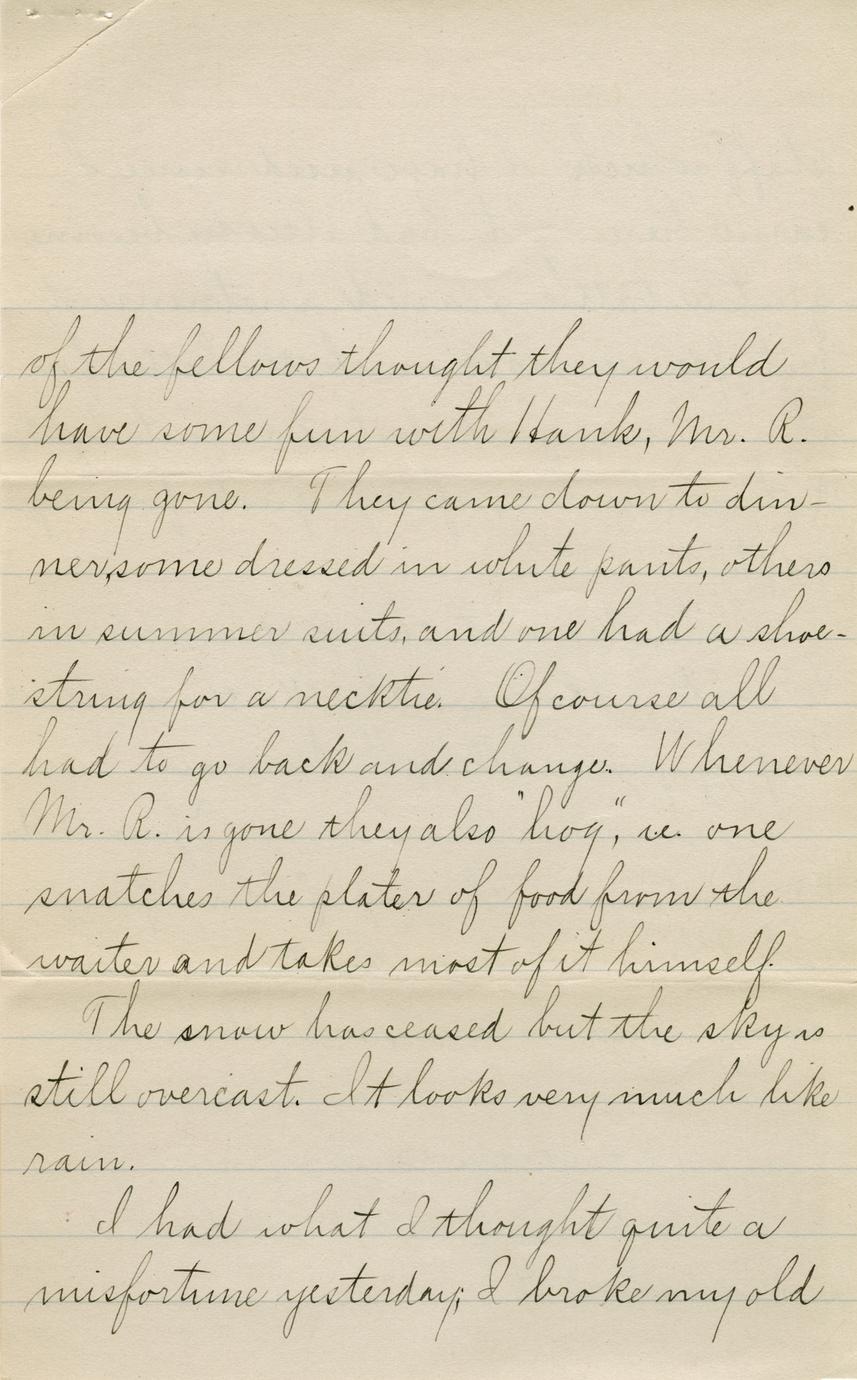 of the fellows thought they would
have some fun with Hank, Mr. R.
being gone. They came down to din-
ner, some dressed in white pants, others
in summer suits, and one had a shoe-
string for a necktie. Of course all
had to go back and change. Whenever
Mr. R. is gone they also "hog", i.e. one
snatches the plater of food from the
waiter and takes most of it himself.
The snow has ceased but the sky is
still overcast. It looks very much like
rain.
I had what I thought quite a
misfortune yesterday; I broke my old